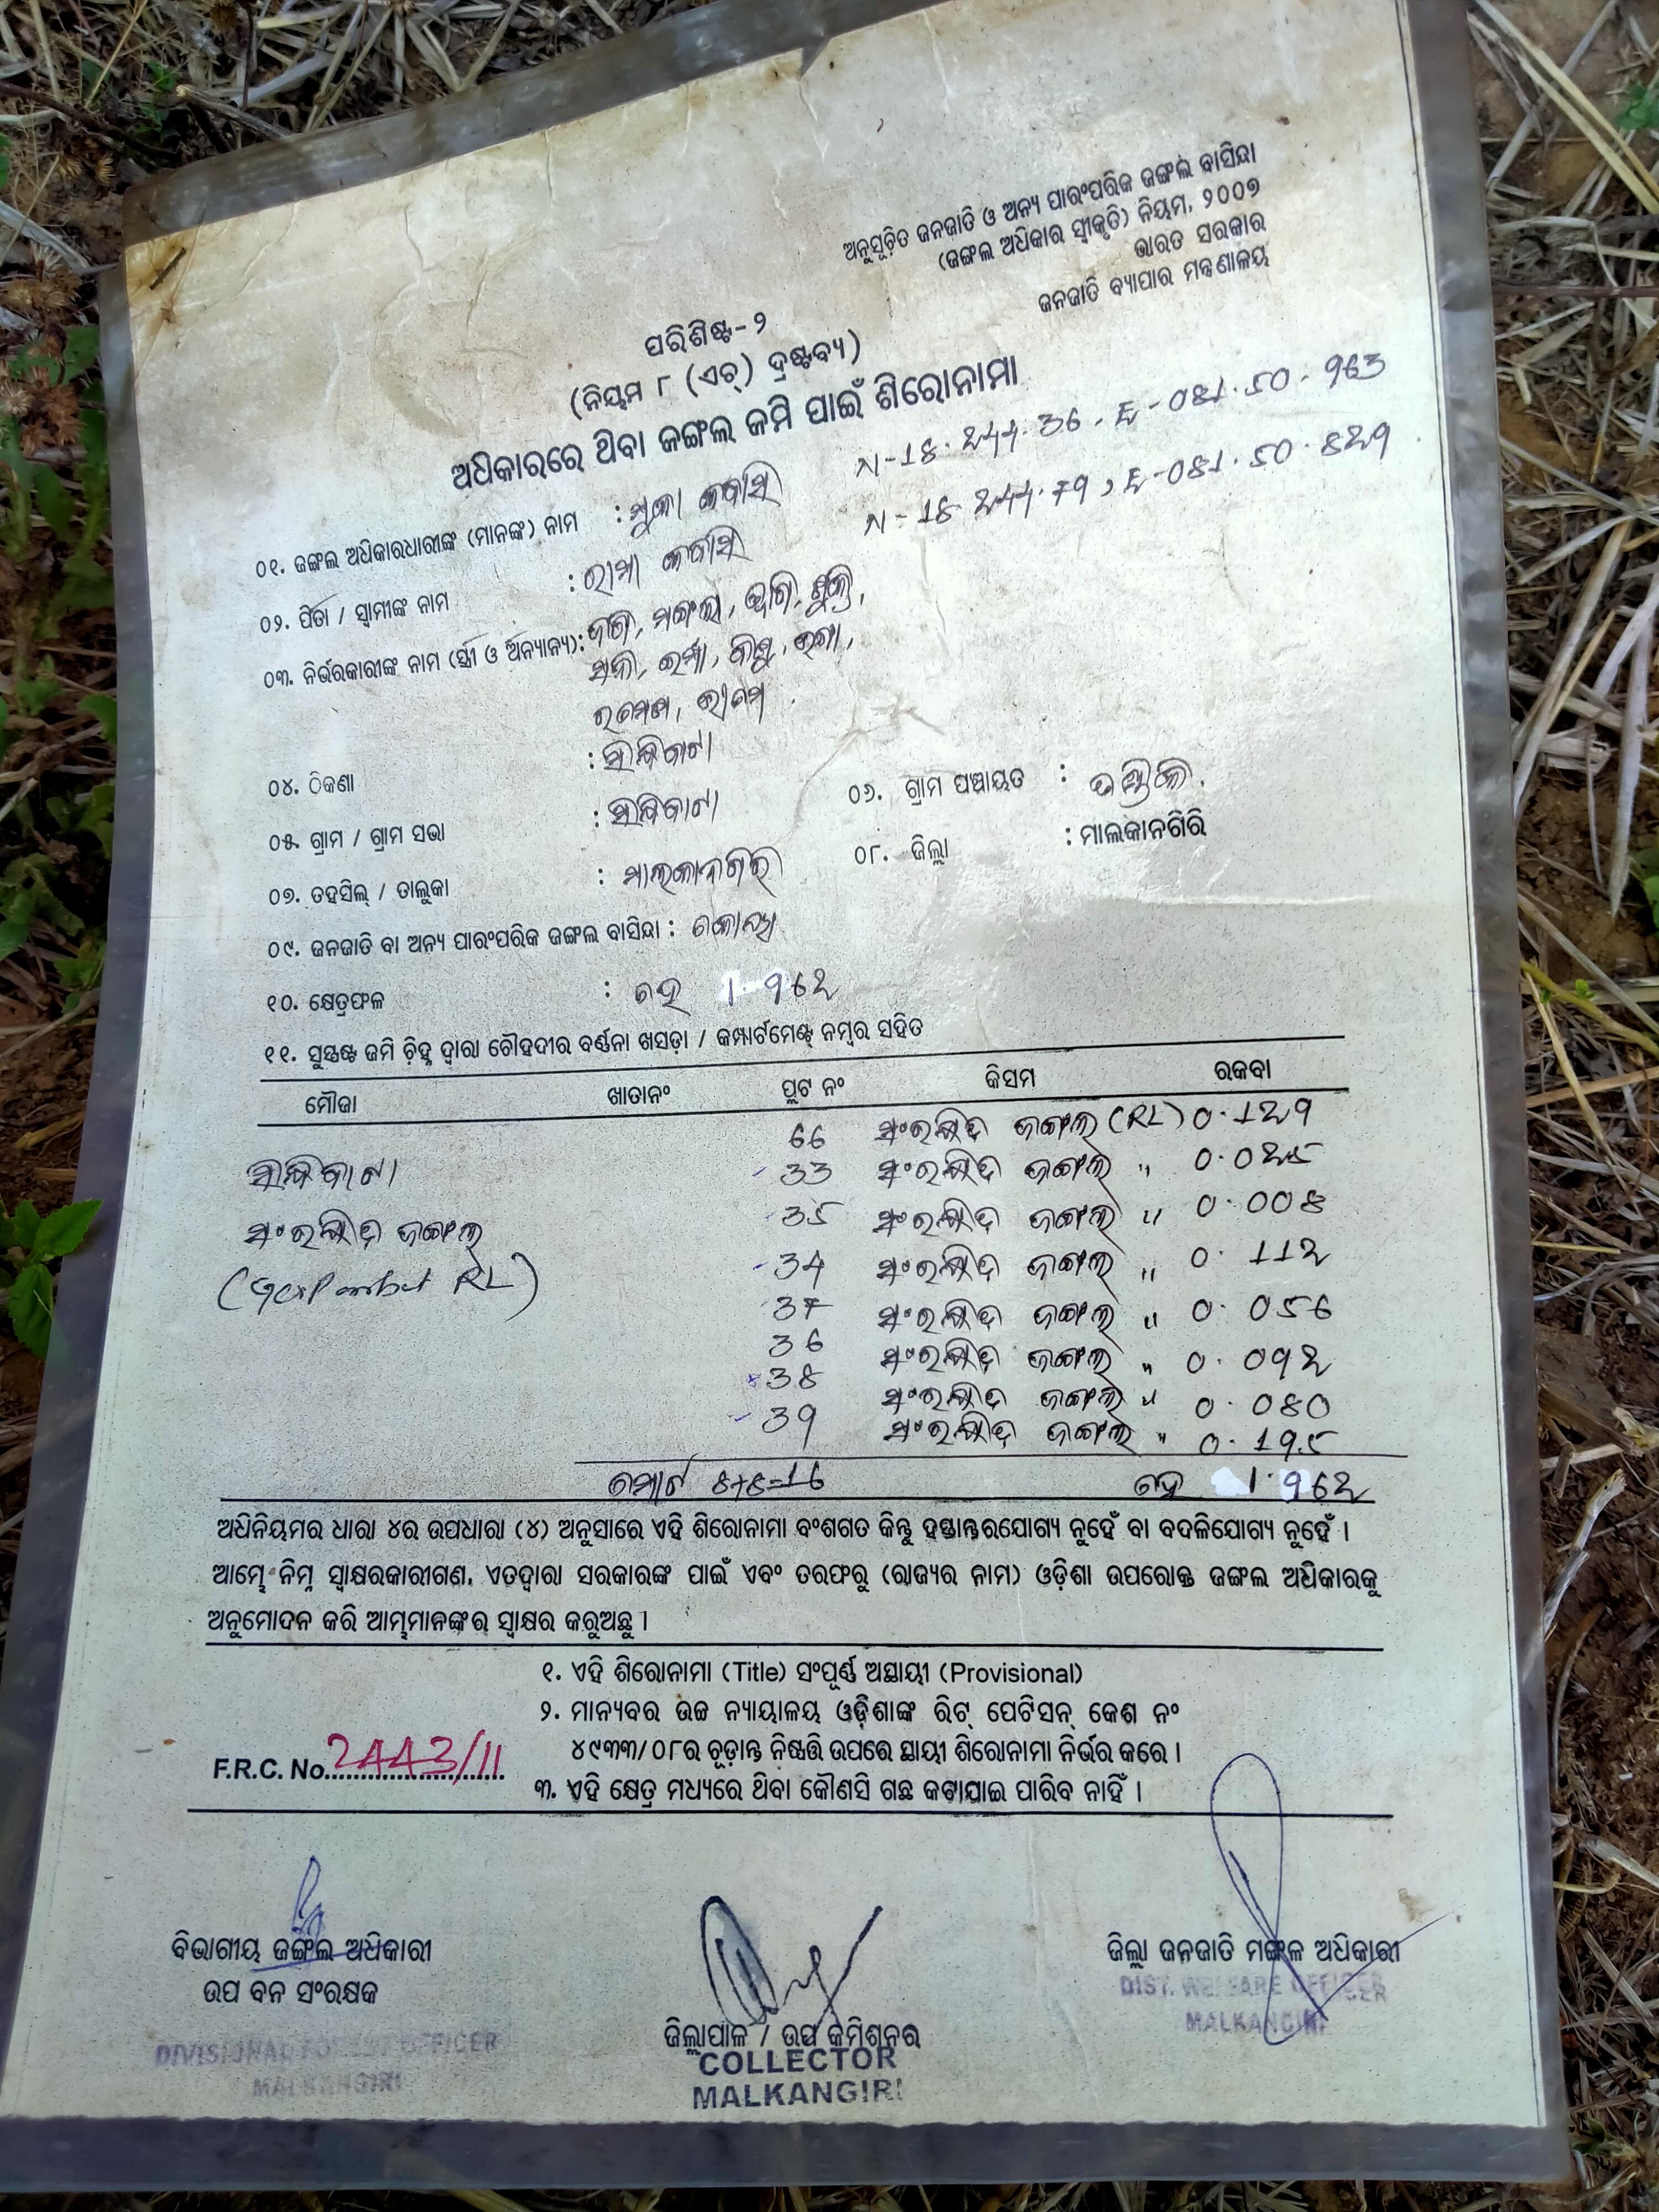 ଅନୁସୂଚିତ ଜନଜାତି ଓ ଅନ୍ୟ ପାରଂପରିକ ଜଙ୍ଗଲ ବାସିନ୍ଦା
(ଜଙ୍ଗଲ ଅଧିକାର ସ୍ୱୀକୃତି) ନିୟମ, ୨୦୦୭
ଭାରତ ସରକାର
ଜନଜାତି ବ୍ୟାପାର ମନ୍ତ୍ରଣାଳୟ
ପରିଶିଷ୍ଟ-୨
(ନିୟମ ୮ (ଏଚ୍) ଦ୍ରଷ୍ଟବ୍ୟ)
ଅଧିକାରରେ ଥିବା ଜଙ୍ଗଲ ଜମି ପାଇଁ ଶିରୋନାମା
୦୧. ଜଙ୍ଗଲ ଅଧିକାରଧାରୀଙ୍କ (ମାନଙ୍କ) ନାମ :
୦୨. ପିତା / ସ୍ୱାମୀଙ୍କ ନାମ :
୦୩. ନିର୍ଭରକାରୀଙ୍କ ନାମ (ସ୍ତ୍ରୀ ଓ ଅନ୍ୟାନ୍ୟ) :
୦୪. ଠିକଣା :
୦୫. ଗ୍ରାମ / ଗ୍ରାମ ସଭା : ୦୬. ଗ୍ରାମ ପଞ୍ଚାୟତ :
୦୭. ତହସିଲ୍ / ତାଲୁକା : ମାଲକାନଗିରି ୦୮. ଜିଲ୍ଲା : ମାଲକାନଗିରି
୦୯. ଜନଜାତି ବା ଅନ୍ୟ ପାରଂପରିକ ଜଙ୍ଗଲ ବାସିନ୍ଦା : କୋୟା
୧୦. କ୍ଷେତ୍ରଫଳ : ହେ 1.962
୧୧. ସୁସ୍ପଷ୍ଟ ଜମି ଚିହ୍ନ ଦ୍ୱାରା ଚୌହଦୀର ବର୍ଣ୍ଣନା ଖସଡ଼ା / କମ୍ପାର୍ଟମେଣ୍ଟ୍ ନମ୍ବର ସହିତ
ମୌଜା ଖାତାନଂ ପ୍ଲଟ ନଂ କିସମ ରକବା
66 ସଂରକ୍ଷିତ ଜଙ୍ଗଲ (RL) 0.129
33 ସଂରକ୍ଷିତ ଜଙ୍ଗଲ " 0.025
35 ସଂରକ୍ଷିତ ଜଙ୍ଗଲ " 0.008
ସଂରକ୍ଷିତ ଜଙ୍ଗଲ
34 ସଂରକ୍ଷିତ ଜଙ୍ଗଲ " 0.112
37 ସଂରକ୍ଷିତ ଜଙ୍ଗଲ " 0.056
36 ସଂରକ୍ଷିତ ଜଙ୍ଗଲ " 0.092
38 ସଂରକ୍ଷିତ ଜଙ୍ଗଲ " 0.080
39 ସଂରକ୍ଷିତ ଜଙ୍ଗଲ " 0.195
ମୋଟ 8+8=16 ହେ 1.962
ଅଧିନିୟମର ଧାରା ୪ର ଉପଧାରା (୪) ଅନୁସାରେ ଏହି ଶିରୋନାମା ବଂଶଗତ କିନ୍ତୁ ହସ୍ତାନ୍ତରଯୋଗ୍ୟ ନୁହେଁ ବା ବଦଳିଯୋଗ୍ୟ ନୁହେଁ ।
ଆମ୍ଭେ ନିମ୍ନ ସ୍ୱାକ୍ଷରକାରୀଗଣ, ଏତଦ୍ୱାରା ସରକାରଙ୍କ ପାଇଁ ଏବଂ ତରଫରୁ (ରାଜ୍ୟର ନାମ) ଓଡ଼ିଶା ଉପରୋକ୍ତ ଜଙ୍ଗଲ ଅଧିକାରକୁ
ଅନୁମୋଦନ କରି ଆମ୍ଭମାନଙ୍କର ସ୍ୱାକ୍ଷର କରୁଅଛୁ ।
୧. ଏହି ଶିରୋନାମା (Title) ସଂପୂର୍ଣ୍ଣ ଅସ୍ଥାୟୀ (Provisional)
୨. ମାନ୍ୟବର ଉଚ୍ଚ ନ୍ୟାୟାଳୟ ଓଡ଼ିଶାଙ୍କ ରିଟ୍ ପେଟିସନ୍ କେଶ ନଂ
୪୯୩୩/୦୮ର ଚୂଡ଼ାନ୍ତ ନିଷ୍ପତ୍ତି ଉପରେ ସ୍ଥାୟୀ ଶିରୋନାମା ନିର୍ଭର କରେ ।
F.R.C. No. 2443/11
୩. ଏହି କ୍ଷେତ୍ର ମଧ୍ୟରେ ଥିବା କୌଣସି ଗଛ କଟାଯାଇ ପାରିବ ନାହିଁ ।
ବିଭାଗୀୟ ଜଙ୍ଗଲ ଅଧିକାରୀ
ଉପ ବନ ସଂରକ୍ଷକ
DIVISIONAL FOREST OFFICER
MALKANGIRI
ଜିଲ୍ଲାପାଳ / ଉପ କମିଶନର
COLLECTOR
MALKANGIRI
ଜିଲ୍ଲା ଜନଜାତି ମଙ୍ଗଳ ଅଧିକାରୀ
DIST. WELFARE OFFICER
MALKANGIRI